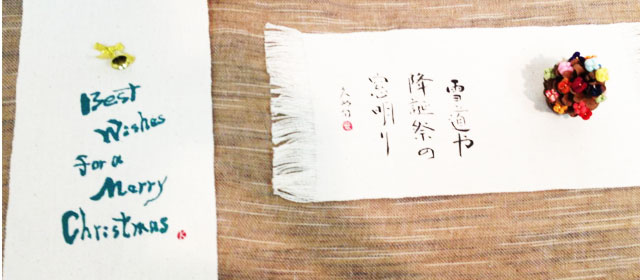 Best
Wishes
for a
Merry
Christmas
雪道や
降誕祭の
窓明り